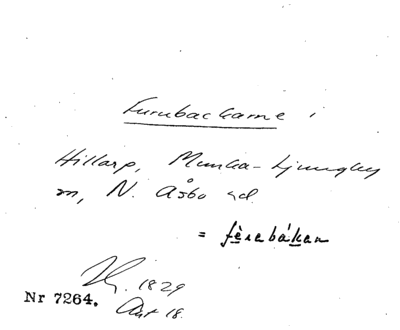 Furubackarne i
Hillarp, Munka-Ljungby
sn, N. Åsbo hd.
= fèrebákan
1829
Nr 7264. Akt 18.